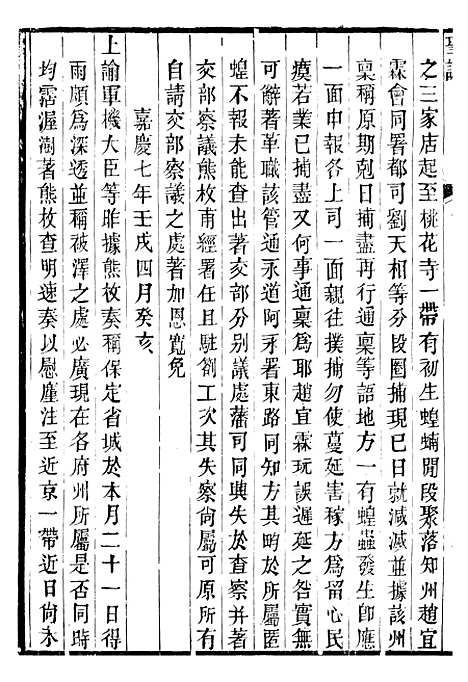 聖訓
之三家店起至桃花寺一帶有初生蝗蝻間段聚落知州趙宜
霖會同署都司劉天相等分段圍捕現已日就減滅並據該州
稟稱原期剋日捕盡再行通稟等語地方一有蝗蟲發生卽應
一面申報各上司一面親往撲捕勿使蔓延害稼方爲畱心民
瘼若業已捕盡又何事通稟爲耶趙宜霖玩誤遲延之咎實無
可辭著革職該管通永道阿永署東路同知方其畇於所屬匿
蝗不報未能查出著交部分別議處藩司同興失於查察并著
交部察議熊枚甫經署任且駐劄工次其失察尙屬可原所有
自請交部察議之處著加恩寬免
嘉慶七年壬戌四月癸亥
上諭軍機大臣等昨據熊枚奏稱保定省城於本月二十一日得
雨頗爲深透並稱被澤之處必廣現在各府州所屬是否同時
均霑渥澍著熊枚查明速奏以慰廑注至近京一帶近日尙未